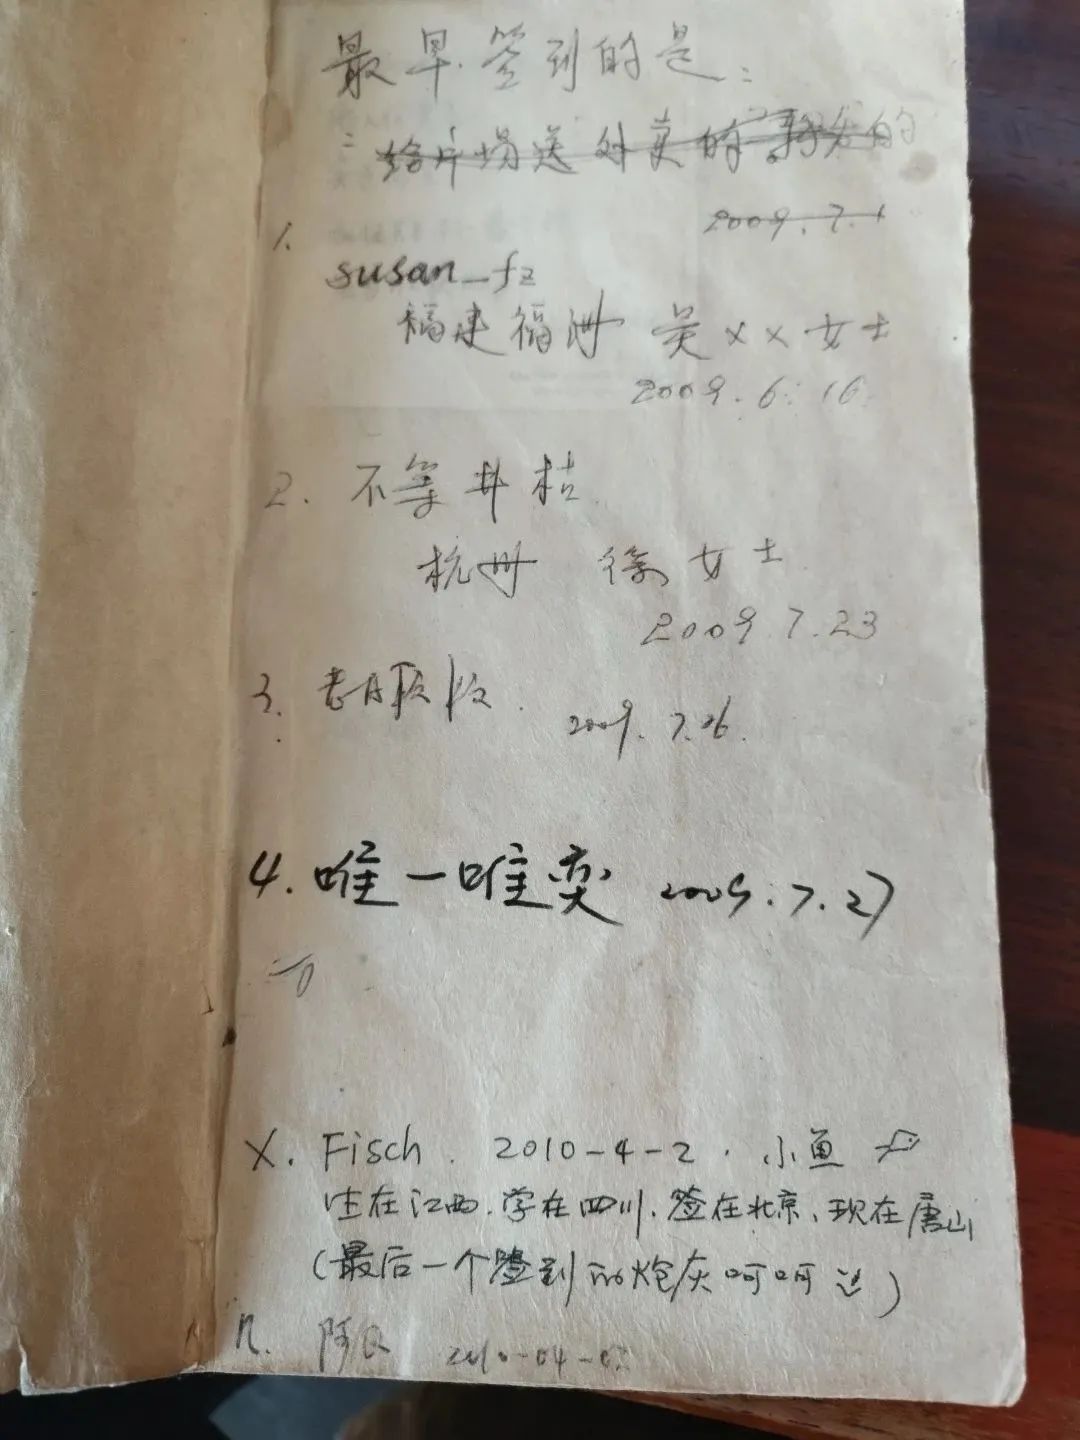 最早签到的是:
给片场送外卖的
2009.7.1
1.
susan_fz
福建福州 吴××女士
2009.6.16
2. 不等井枯
杭州 徐女士
2009.7.23
3.
2009.7.26.
4. 唯一唯奕 2009.7.27
X. Fisch. 2010-4-2. 小鱼
生在江西.学在四川.签在北京、现在唐山
(最后一个签到的炮灰呵呵)
n. 阿 2010-04-0